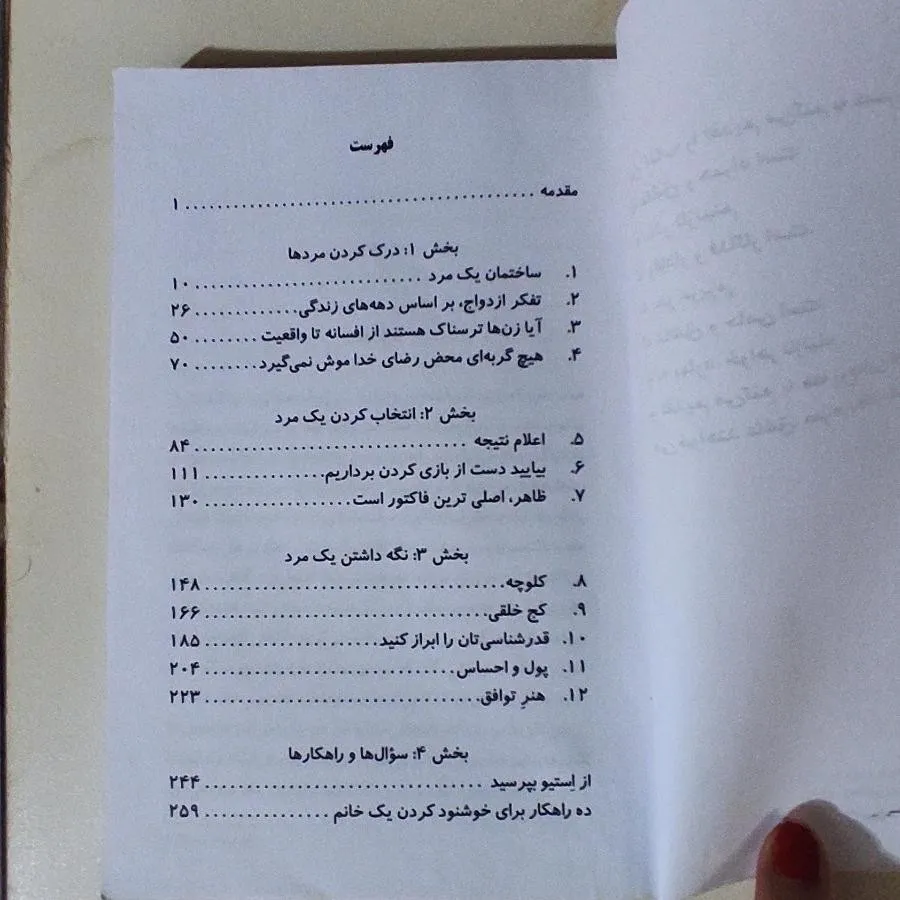 فهرست
مقدمه ........................................ ۱
بخش ۱: درک کردن مردها
۱. ساختمان یک مرد ........................... ۱۰
۲. تفکر ازدواج، بر اساس دهه‌های زندگی ............. ۲۶
۳. آیا زن‌ها ترسناک هستند از افسانه تا واقعیت ........ ۵۰
۴. هیچ گربه‌ای محض رضای خدا موش نمی‌گیرد ........ ۷۰
بخش ۲: انتخاب کردن یک مرد
۵. اعلام نتیجه ............................... ۸۴
۶. بیایید دست از بازی کردن برداریم ............... ۱۱۱
۷. ظاهر، اصلی ترین فاکتور است .................. ۱۳۰
بخش ۳: نگه داشتن یک مرد
۸. کلوچه ..................................... ۱۴۸
۹. کج خلقی ................................... ۱۶۶
۱۰. قدرشناسی‌تان را ابراز کنید ..................... ۱۸۵
۱۱. پول و احساس ............................... ۲۰۴
۱۲. هنرِ توافق .................................. ۲۲۳
بخش ۴: سؤال‌ها و راهکارها
از اِستیو بپرسید .................................. ۲۴۴
ده راهکار برای خوشنود کردن یک خانم ............... ۲۵۹